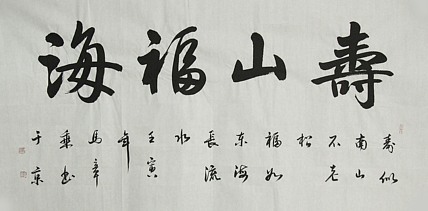 壽山福海
壽似
南山
不老
松
福如
东海
長流
水
壬寅
年
馬章
乘书
于京